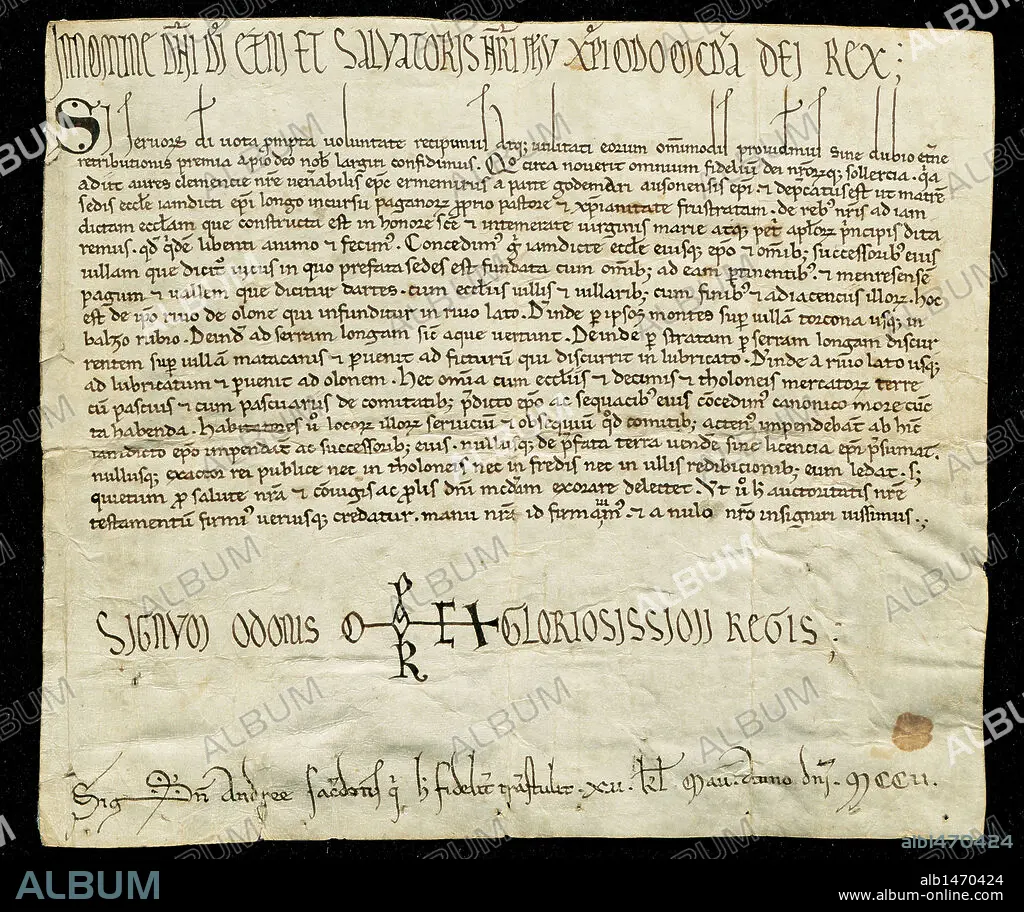 In nomine dn̄i di ęt̄ni et salvatoris n̄ri ihu xp̄i odo mcd̄a dei rex;
Si servorȝ di vota prompta voluntate recipimus atq; utilitati eorum om̄imodis providemus sine dubio et̄ne
retributionis premia a pio deo nob̄ largiri confidimus. Qo circa noverit omnium fidelium dei nr̄orȝq; sollercia. qa
adiit aures clementie nr̄e ven̄abilis epc̄ ermemirus a parte godemari ausonensis epi & dep̄catus est ut matrē
sedis eccl̄e iamdicti epi longo incursu paganorȝ prprio pastore & xp̄ianitate frustratam. de reb; nr̄is ad iam
dictam eccl̄am que constructa est in honore sc̄e & intemerate virginis marie atq; petri apl̄orȝ principis dita
remus. qd qidē libenti animo & fecim;. Concedim; g̃ iamdicte eccl̄e eiusq; epo & om̄ib; successorib; eius
villam que dicit᷑ vicus in quo prefata sedes est fundata cum om̄ib; ad eam ptinentib;. & menresensē
pagum & vallem que dicitur dartes. cum eccl̄iis villis & villarib; cum finib; & adiacenciis illorȝ. hoc
est de ipo rivo de olone qui infunditur in rivo lato. Dinde p ipsos montes sup villā torcona usq; in
balzo rubio. Deind̄ ad serram longam sic̄ aque vertunt. Deinde p stratam p serram longam discur
rentem sup villam matacanis & pvenit ad ficturum qui discurrit in lubricato. Dinde a rivo lato usq;
ad lubricatum & pvenit ad olonem. Hec om̄ia cum eccl̄iis & decimis & tholoneis mercatorȝ terre
cū pascuis & cum pascuariis de comitatib; p̄dicto epo ac sequacib; eius con̄cedim; canonico more cunc
ta habenda. Habitatores u̾ locorȝ illorȝ serviciū & obsequiū qd comitib; acten; impendebāt ab hic
iamdicto epo impendāt ac successorib; eius. nullusq; de p̄fata terra vende sine licencia epi p̄sumat.
nullusq; exactor rei publice nec in tholoneis nec in fredis nec in illis redibicionib; eum ledat. s;
quietum p salute nr̄a & con̄iugis ac prolis dn̄i mcd̄am exorare delectet. Ut u̾ h̄ auctoritatis nr̄e
testamentū firmi; veriusq; credatur. manu nr̄a id firmavim; & a nulo nr̄o insigniri iussimus.;
Signum odonis O R E gloriosissimi regis;
Sig Andree sac̄dotis qi h̄ fideliť transtulit. xv. kl̄ Maii. anno dn̄i. MCCII.
ALBUM
alb1470424
www.album-online.com